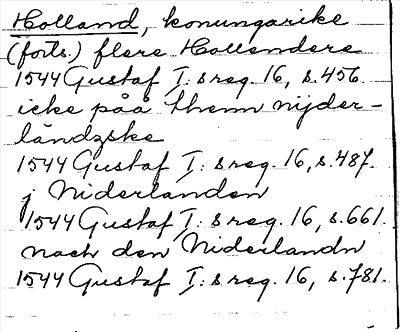 Holland, konungarike
(forts.) flere Hollendere
1544 Gustaf I:s reg. 16, s. 456.
icke påå them nijder-
ländzske
1544 Gustaf I:s reg. 16, s. 487.
j Niderlanden
1544 Gustaf I:s reg. 16, s. 661.
nach den Niderlandn
1544 Gustaf I:s reg. 16, s. 781.